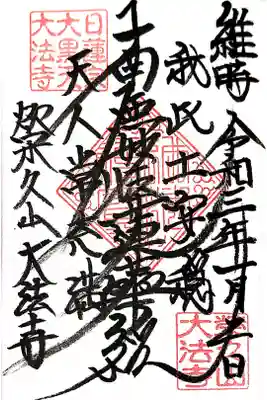 維時 令和三年
我此土安穏
南無妙法蓮華経
天人常充満
栄久山大法寺
日蓮宗
大黒天
大法寺
栄久山
大法寺